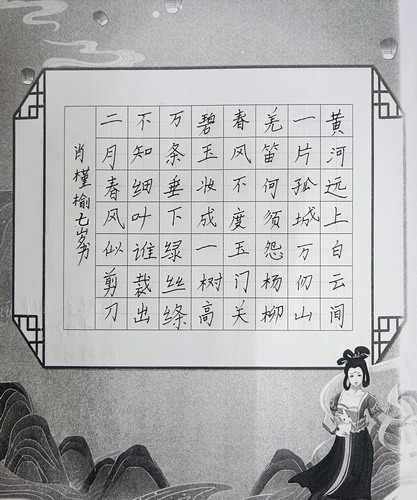 黄河远上白云间
一片孤城万仞山
羌笛何须怨杨柳
春风不度玉门关
碧玉妆成一树高
万条垂下绿丝绦
不知细叶谁裁出
二月春风似剪刀
肖槿榆七岁